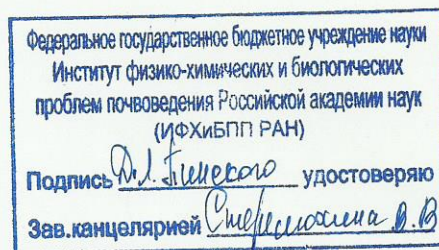 Федеральное государственное бюджетное учреждение науки
Институт физико-химических и биологических
проблем почвоведения Российской академии наук
(ИФХиБПП РАН)
Подпись Д.Л. Пинского удостоверяю
Зав.канцелярией В.В